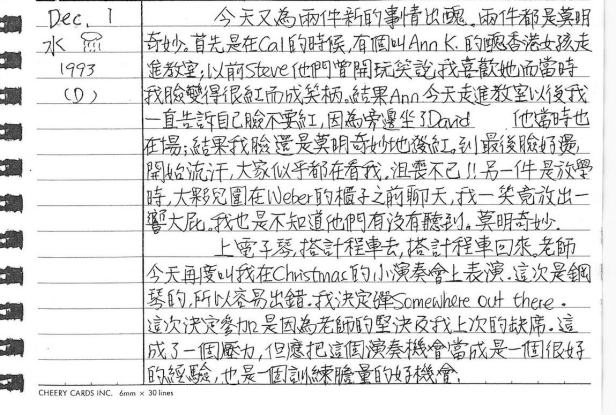 Dec. 1
水
1993
(D)
今天又為兩件新的事情出醜。兩件都是莫明
奇妙。首先是在Cal的時候，有個叫Ann K.的醜香港女孩走
進教室；以前Steve他們曾開玩笑說我喜歡她而當時
我臉變得很紅而成笑柄。結果Ann今天走進教室以後我
一直告訴自己臉不要紅，因為旁邊坐了David 他當時也
在場；結果我臉還是莫明奇妙地發紅。到最後臉好燙，
開始流汗，大家似乎都在看我。沮喪不已!! 另一件是放學
時，大夥兒圍在Weber的櫃子之前聊天，我一笑竟放出一
響大屁。我也是不知道他們有沒有聽到。莫明奇妙.
上電子琴，搭計程車去，搭計程車回來。老師
今天再度叫我在Christmas的小演奏會上表演。這次是鋼
琴的，所以容易出錯。我決定彈Somewhere out there.
這次決定參加是因為老師的堅決及我上次的缺席。這
成了一個壓力，但應把這個演奏機會當成是一個很好
的經驗，也是一個訓練膽量的好機會.
CHEERY CARDS INC. 6mm × 30 lines